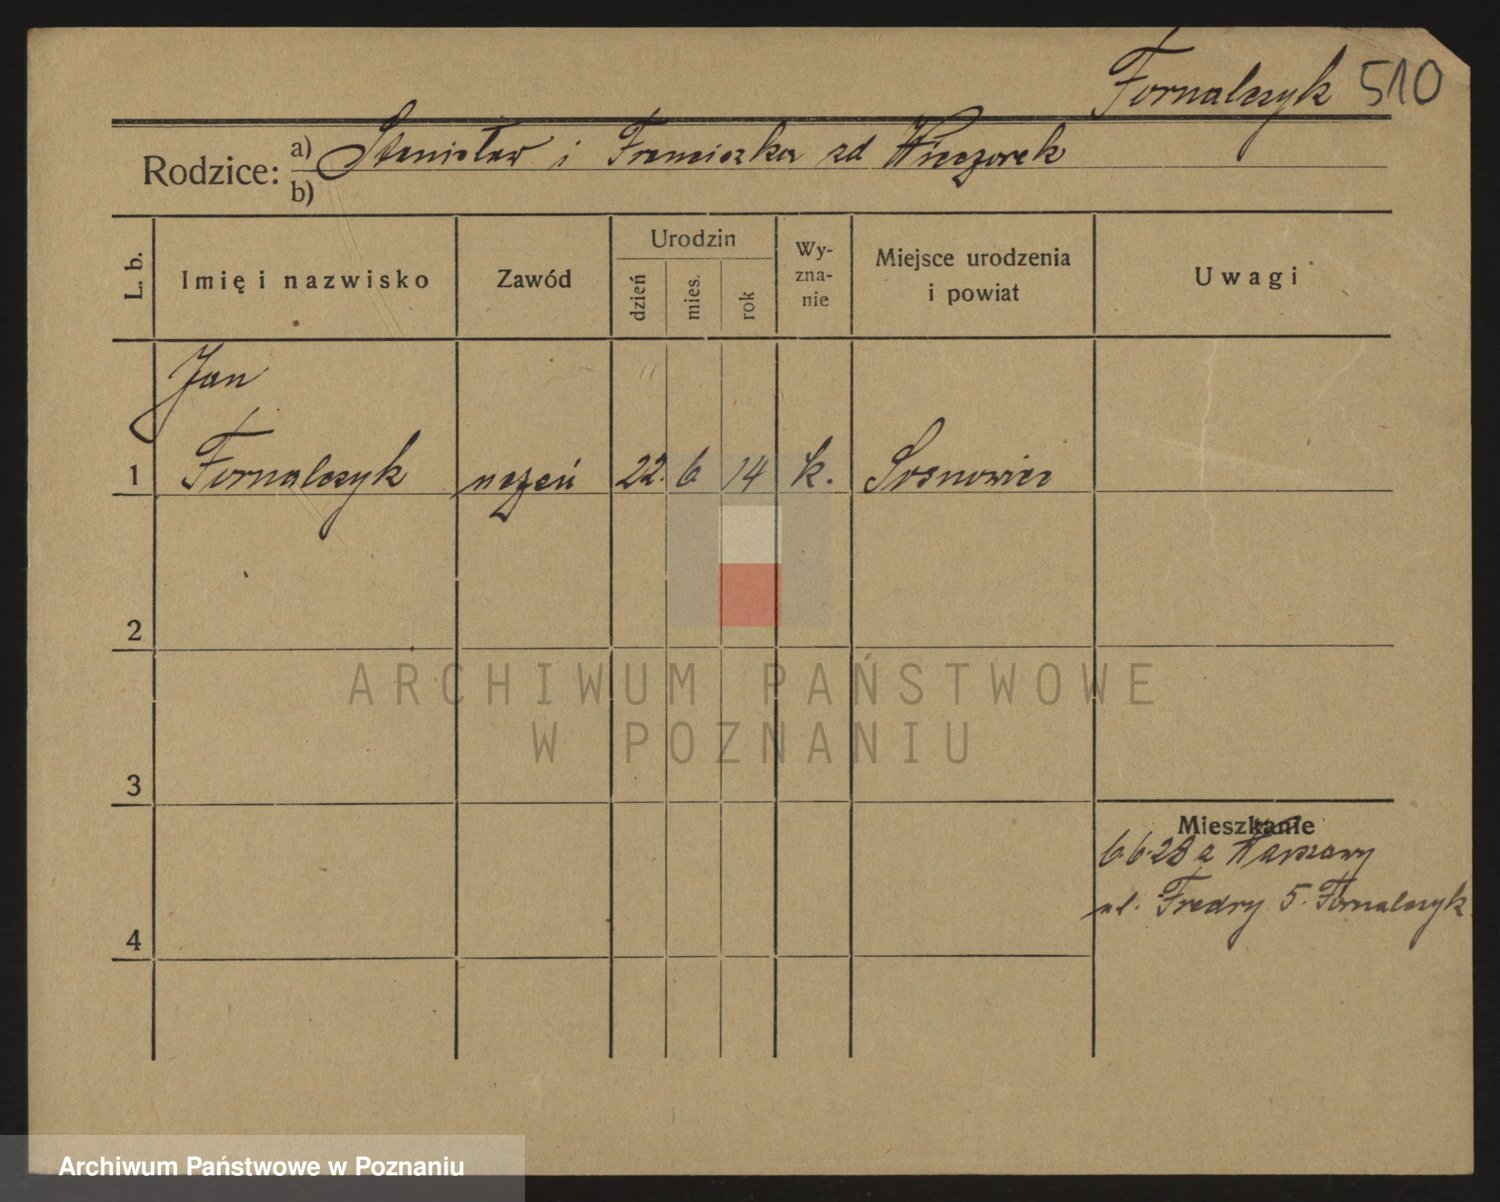 Fornalczyk 510
Rodzice: a) Stanisław i Franciszka zd Wieczorek
b)
L. b.
Imię i nazwisko
Zawód
Urodzin
dzień
mies.
rok
Wy-
zna-
nie
Miejsce urodzenia
i powiat
Uwagi
Jan
1 Fornalczyk uczeń 22. 6 14 k. Sosnowiec
2
3
Mieszkanie
6.6.28 z Warszawy
ul. Fredry 5. Fornalczyk
4
ARCHIWUM PAŃSTWOWE
W POZNANIU
Archiwum Państwowe w Poznaniu